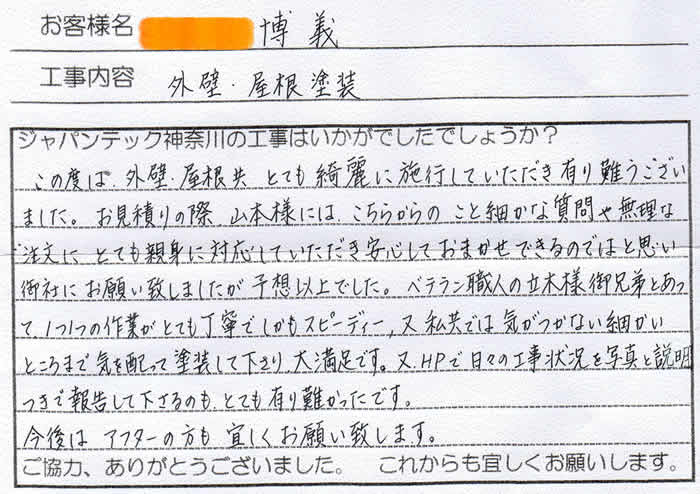 お客様名 博義
工事内容 外壁・屋根塗装
ジャパンテック神奈川の工事はいかがでしたでしょうか?
この度は、外壁・屋根共 とても綺麗に施行していただき有り難うござい
ました。お見積りの際、山本様には、こちらからの こと細かな質問や無理な
注文に とても親身に対応していただき安心しておまかせできるのではと思い
御社にお願い致しましたが予想以上でした。ベテラン職人の立木様御兄弟とあっ
て、1つ1つの作業がとても丁寧でしかもスピーディー、又 私共では 気がつかない細かい
ところまで 気を配って塗装して下さり、大満足です。又、HPで日々の工事状況を写真と説明
つきで報告して下さるのも、とても有り難かったです。
今後は アフターの方も 宜しくお願い致します。
ご協力、ありがとうございました。 これからも宜しくお願いします。